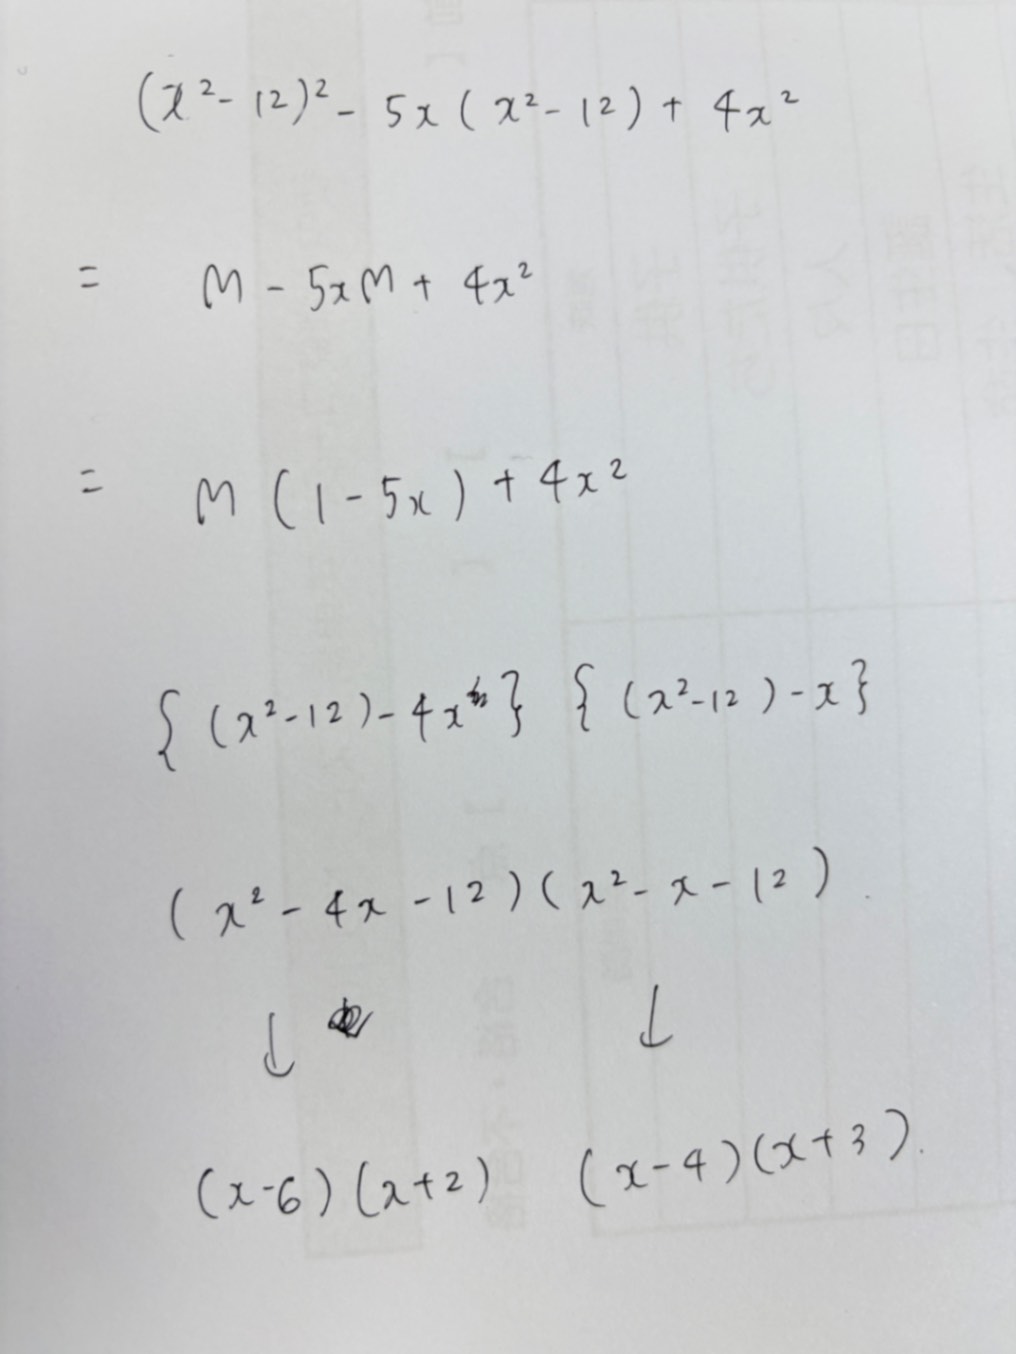 (x²-12)²-5x(x²-12)+4x²
= M-5xM+4x²
= M(1-5x)+4x²
{(x²-12)-4x}{(x²-12)-x}
(x²-4x-12)(x²-x-12).
↓ ↓
(x-6)(x+2) (x-4)(x+3).